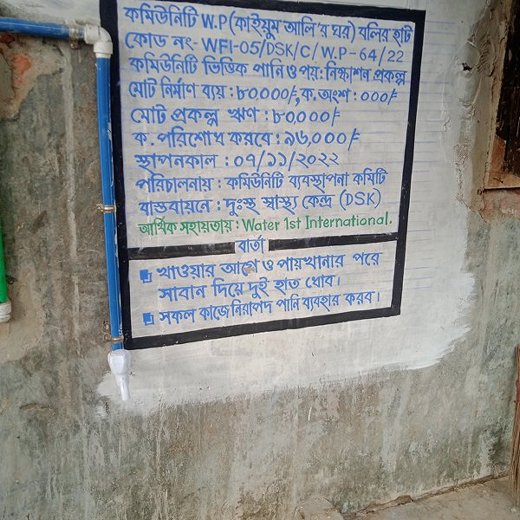 কমিউনিটি W.P(কাইয়ুম আলি'র ঘর) বলির হাট
কোড নং-WFI-05/DSK/C/W.P-64/22
কমিউনিটি ভিত্তিক পানি ও পয়ঃ নিষ্কাশন প্রকল্প
মোট নির্মাণ ব্যয় : ৮০,০০০/=, ক. অংশ : ০০০/=
মোট প্রকল্প ঋণ : ৮০,০০০/=
ক. পরিশোধ করবে : ৯৬,০০০/=
স্থাপনকাল : ০৭/১১/২০২২
পরিচালনায় : কমিউনিটি ব্যবস্থাপনা কমিটি
বাস্তবায়নে : দুঃস্থ স্বাস্থ্য কেন্দ্র (DSK)
আর্থিক সহায়তায় : Water 1st International.
বার্তা
খাওয়ার আগে ও পায়খানার পরে
সাবান দিয়ে দুই হাত ধোব।
সকল কাজে নিরাপদ পানি ব্যবহার করব।